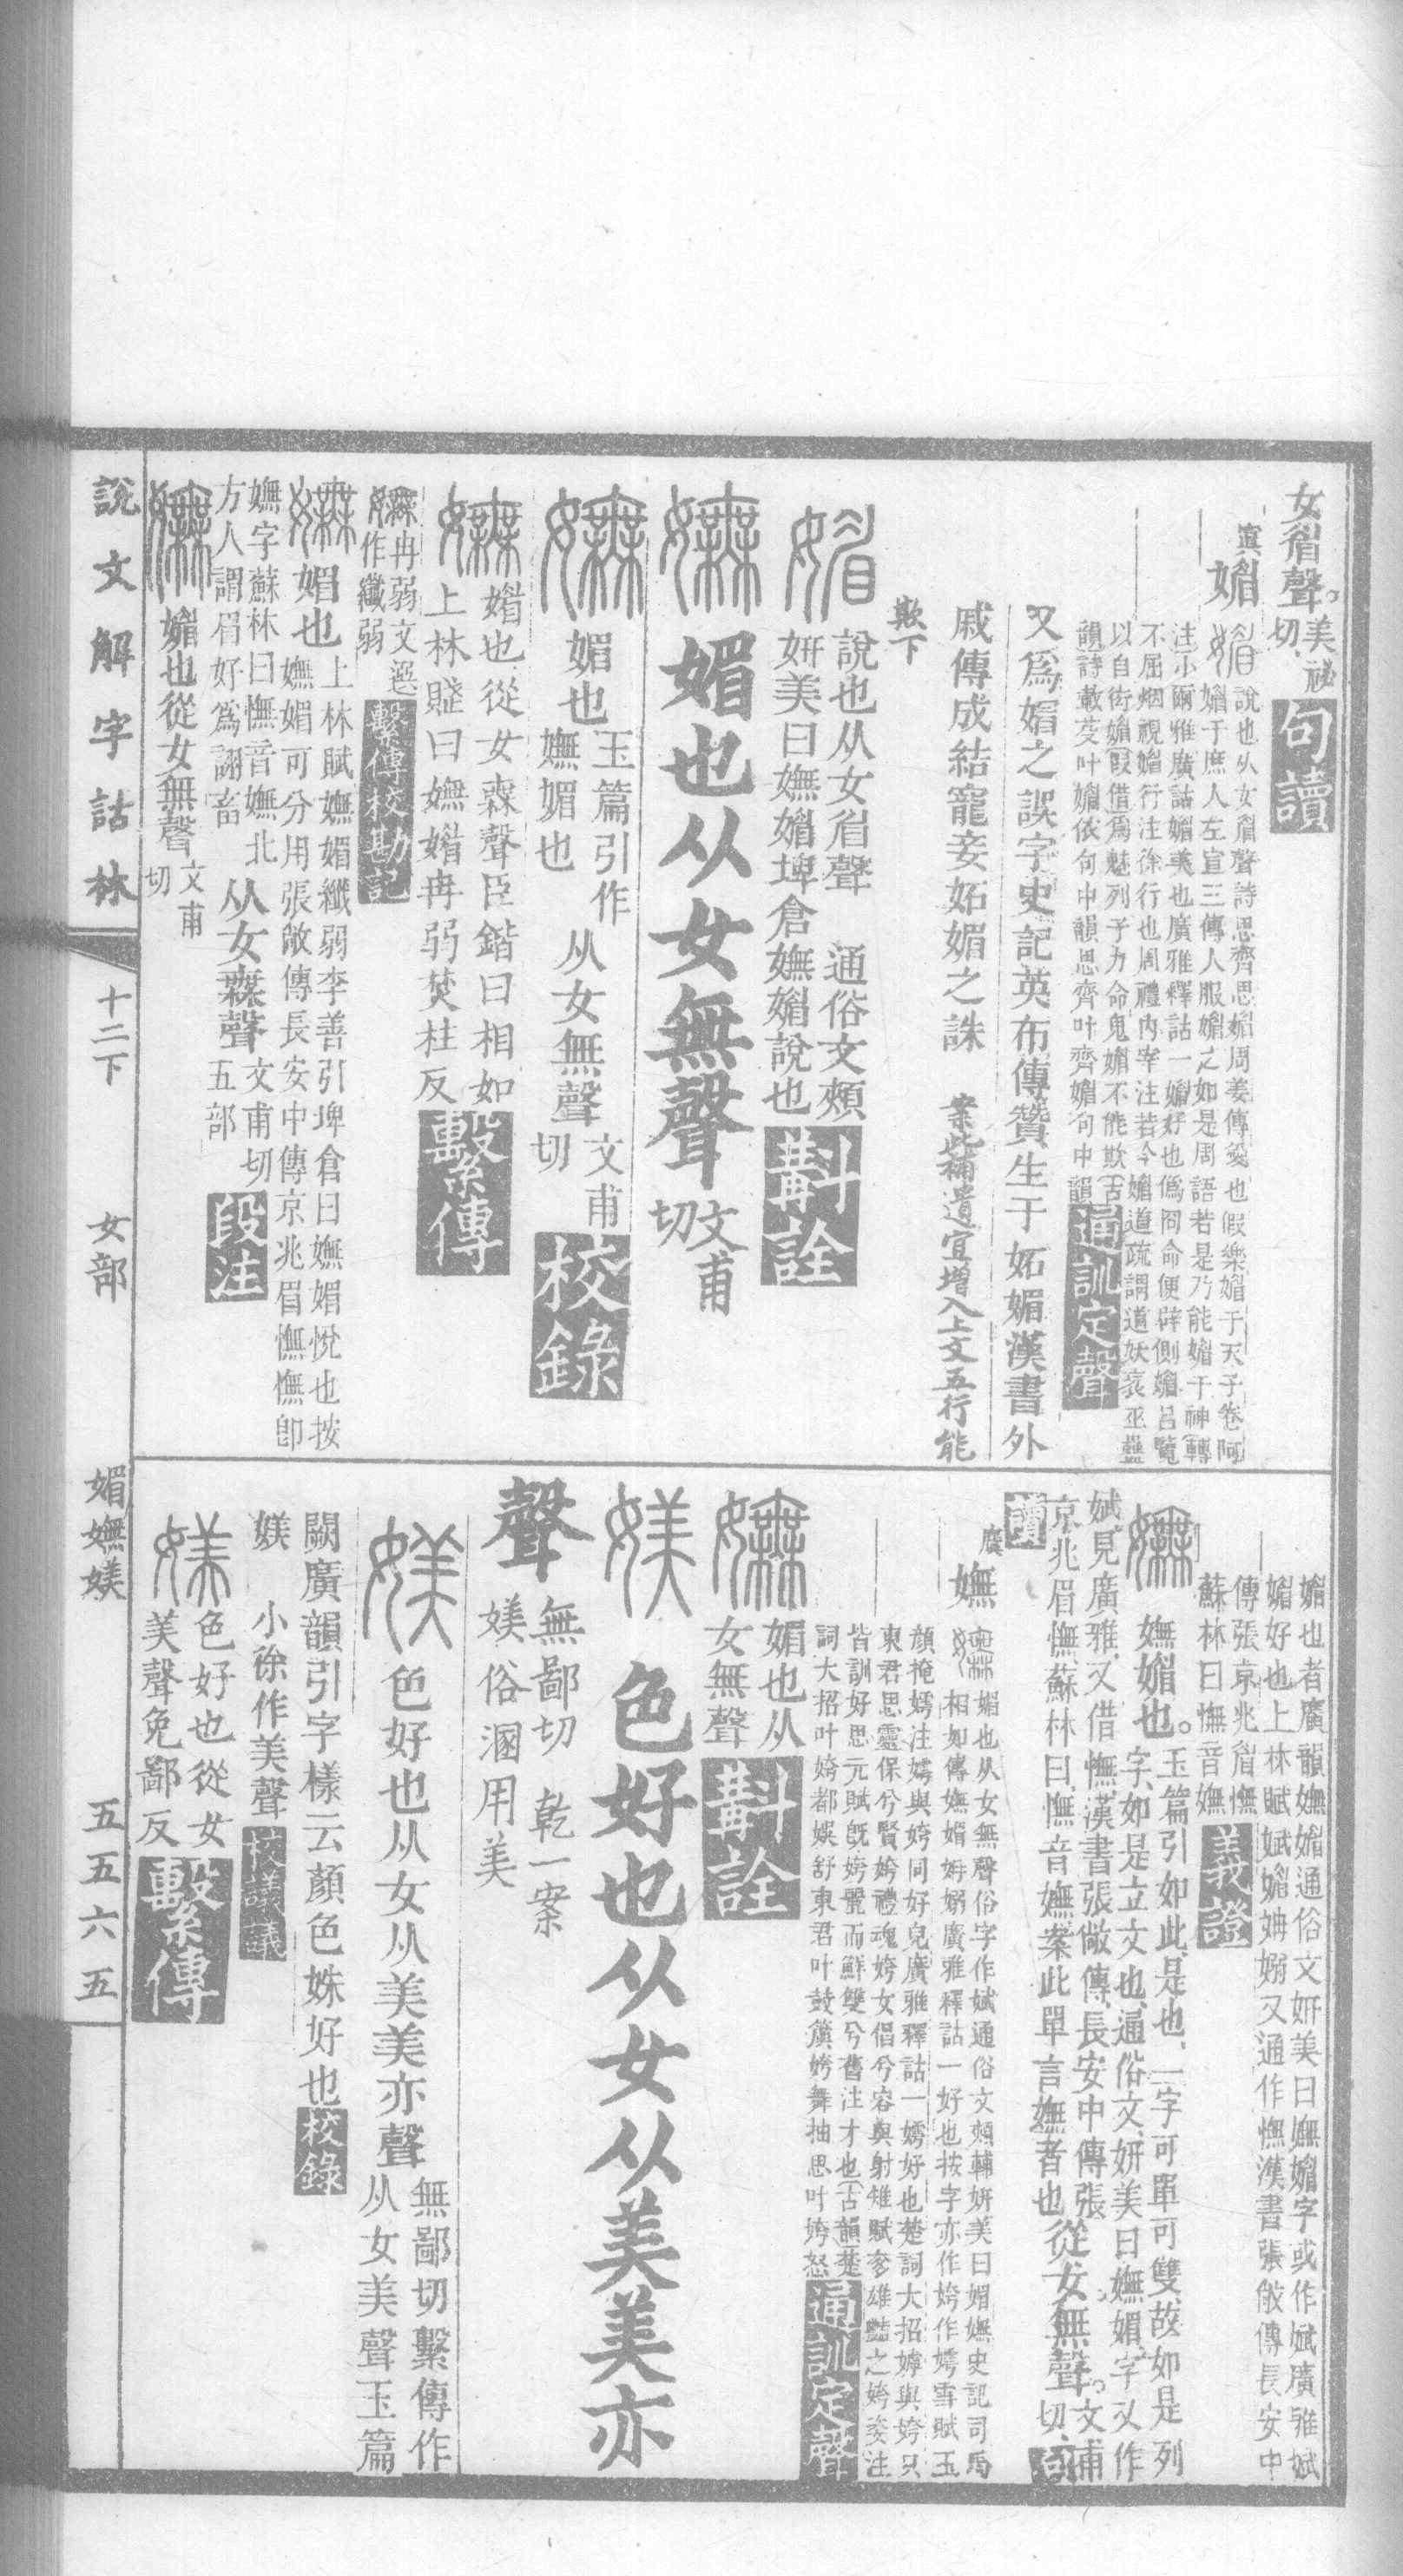 女眉聲。美祕切、句讀
媚
說也从女眉聲詩思齊思媚周姜傳愛也假樂媚于天子卷阿
媚于庶人左宣三傳人服媚之如是周語若是乃能媚于神
注小爾雅廣詁媚美也廣雅釋詁一媚好也僞冏命便辟側媚呂覽
不屈烟視媚行注徐行也周禮內宰注若今媚道疏謂道妖衺巫蠱
以自衒媚叚借爲魅列子力命鬼媚不能欺古
韻詩載芟叶媚依句中韻思齊叶齊媚句中韻通訓定聲
又爲媢之誤字史記英布傳贊生于妬媚漢書外
戚傳成結寵妾妬媚之誅 案此補遺宜增入上文五行能
欺下
說也从女眉聲 通俗文頰
妍美曰嫵媚埤倉嫵媚說也斠詮
媚也从女無聲文甫切
媚也玉篇引作嫵媚也从女無聲文甫切校錄
媚也從女橆聲臣鍇曰相如
上林賦曰嫵媚冉弱焚柱反繫傳
冉弱文選
作纖弱繫傳校勘記
媚也上林賦嫵媚纖弱李善引埤倉曰嫵媚悅也按
嫵媚可分用張敞傳長安中傳京兆眉憮憮卽
嫵字蘇林曰憮音嫵北
方人謂眉好爲詡畜从女橆聲文甫切五部段注
媚也從女無聲文甫切
說文解字詁林 十二下 女部 媚嫵媄 五五六五
媚也者廣韻嫵媚通俗文妍美曰嫵媚字或作斌廣雅斌
媚好也上林賦斌媚姌嫋又通作憮漢書張敞傳長安中
傳張京兆眉憮
蘇林曰憮音嫵義證
嫵媚也。玉篇引如此、是也、一字可單可雙、故如是列
字、如是立文也、通俗文、妍美曰嫵媚、字又作
斌、見廣雅、又借憮、漢書張敞傳、長安中傳張
京兆眉憮、蘇林曰、憮音嫵、案此單言嫵者也從女無聲。文甫切、句
讀
嫵
媚也从女無聲俗字作斌通俗文頰輔妍美曰媚嫵史記司馬
相如傳嫵媚姌嫋廣雅釋詁一好也按字亦作姱作嫮雪賦玉
顏掩嫮注嫮與姱同好皃廣雅釋詁一嫮好也楚詞大招嫭與姱只
東君思靈保兮賢姱禮魂姱女倡兮容與射雉賦奓雄豔之姱姿注
皆訓好思元賦旣姱麗而鮮雙兮舊注才也古韻楚
詞大招叶姱都娛舒東君叶鼓簴姱舞抽思叶姱怒通訓定聲
媚也从
女無聲斠詮
色好也从女从美美亦
聲無鄙切 乾一案
媄俗溷用美
色好也从女从美美亦聲無鄙切繫傳作
从女美聲玉篇
闕廣韻引字樣云顏色姝好也校錄
媄 小徐作美聲校議議
色好也從女
美聲免鄙反繫傳